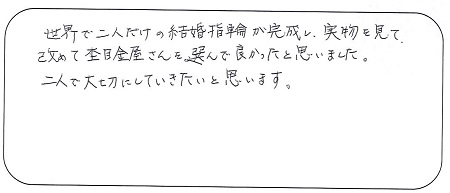 世界で二人だけの結婚指輪が完成し、実物を見て、
改めて杢目金屋さんを選んで良かったと思いました。
二人で大切にしていきたいと思います。